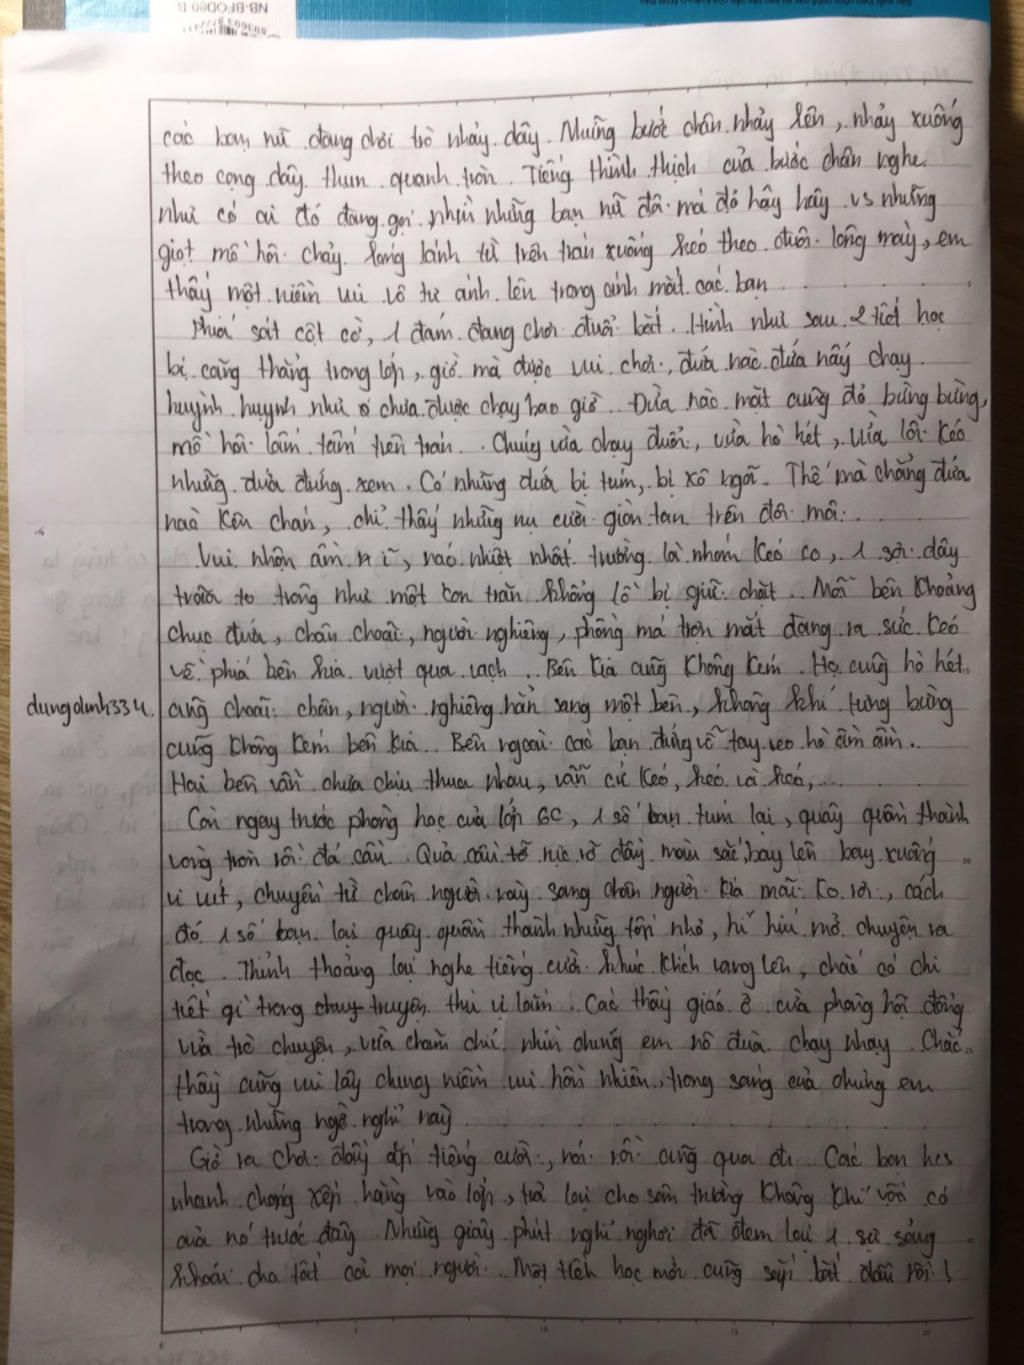 NB-BFOD80-B
các bạn nữ đang chơi trò nhảy dây. Những bước chân nhảy lên, nhảy xuống
theo cọng dây thun quanh tròn. Tiếng thình thịch của bước chân nghe
như có ai đó đang gọi, nhìn những bạn nữ đôi má đỏ hây hây vs những
giọt mồ hôi chảy long lanh từ trên trán xuống kéo theo đuôi lông mày, em
thấy một niềm vui vô tư ánh lên trong ánh mắt các bạn
Phía sát cột cờ, 1 đám đang chơi đuổi bắt. Hình như sau 2 tiết học
bị căng thẳng trong lớp, giờ mà được vui chơi, đứa nào đứa nấy chạy
huỳnh huỵnh như chưa được chạy bao giờ. Đứa nào mặt cũng đỏ bừng bừng,
mồ hôi lấm tấm trên trán. Chúng vừa chạy đuổi, vừa hò hét, vừa lôi kéo
những đứa đứng xem. Có những đứa bị túm, bị xô ngã. Thế mà chẳng đứa
nào kêu chán, chỉ thấy những nụ cười giòn tan trên đôi môi.
Vui nhộn ầm ĩ, náo nhiệt nhất trường là nhóm kéo co, 1 sợi dây
to trông như một con trăn khổng lồ bị giữ chặt. Mỗi bên khoảng
chục đứa, chân choãi, người nghiêng, phồng má trợn mắt đang ra sức kéo
về phía bên kia vượt qua vạch. Bên kia cũng không kém. Họ cũng hò hét,
dungdinh334. cũng choãi chân, người nghiêng hẳn sang một bên, không khí tưng bừng
cũng không kém bên kia. Bên ngoài các bạn đứng vỗ tay reo hò ầm ầm.
Hai bên vẫn chưa chịu thua nhau, vẫn cứ kéo, kéo và kéo,...
Còn ngay trước phòng học của lớp 6C, 1 số bạn túm lại, quây quần thành
vòng tròn rồi đá cầu. Quả cầu rực rỡ đầy màu sắc bay lên bay xuống
vi vút, chuyền từ chân người này sang chân người kia mãi ko rơi, cách
đó 1 số bạn lại quây quần thành những tốp nhỏ, hí húi mở chuyện ra
đọc. Thỉnh thoảng lại nghe tiếng cười khúc khích vang lên, chắc có chi
tiết gì trong truyện thú vị lắm. Các thầy giáo ở cửa phòng hội đồng
vừa trò chuyện, vừa chăm chú nhìn chúng em nô đùa chạy nhảy. Chắc
thầy cũng vui lây chung niềm vui hồn nhiên, trong sáng của chúng em
trong những ngờ nghỉ này
Giờ ra chơi đầy ắp tiếng cười, nói rồi cũng qua đi. Các bạn hs
nhanh chóng xếp hàng vào lớp, trả lại cho sân trường không khí vốn có
của nó trước đây. Những giây phút nghỉ ngơi đã đem lại 1 sự sảng
khoái cho tất cả mọi người. Một tiết học mới cũng sắp bắt đầu rồi!